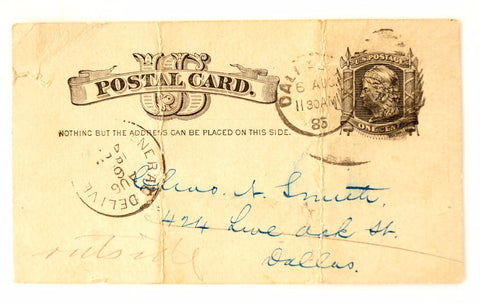 POSTAL CARD.
U.S. POSTAGE
ONE CENT
DALLAS
6 AUG
11 30 AM
85
NOTHING BUT THE ADDRESS CAN BE PLACED ON THIS SIDE.
AUG
N. Smith,
424 Live Oak St.
Dallas.
outside